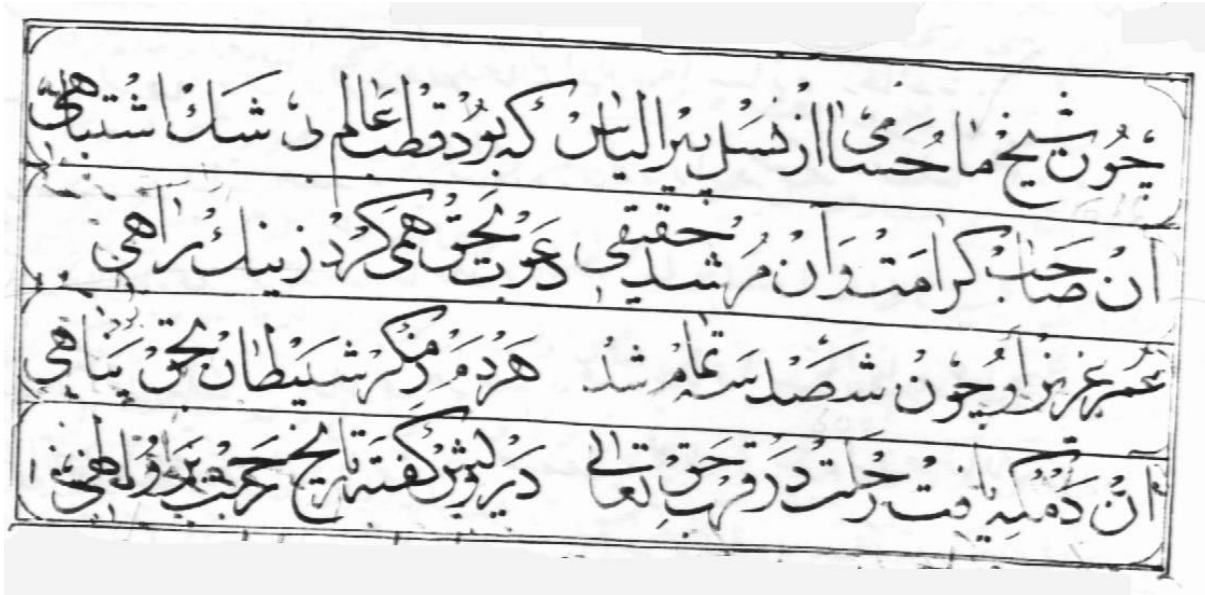 چون شیخ ما حسامی از نسل پیر الیاس که بود قطب عالم بی شک اشتباهی
آن صاحب کرامت وآن مرشد حقیقی دعوت بحق همی کرد زینك راهی
عمر عزیز او چون شصد سه تمام شد هردم ز مکر شیطان بحق پناهی
آن دم که یافت رحلت در قرب حق تعالی درویش گفته تاریخ